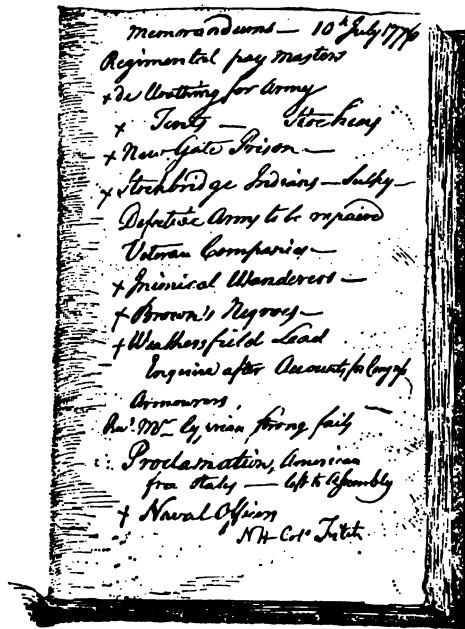 Memorandums — 10th July 1776
Regimental pay masters
+ do Cloathing for Army
+ Tents — Stockens
+ New Gate Prison —
+ Stockbridge Indians — Sulky —
Defective Arms to be repaired
Veteran Companies —
+ Inimical Wanderers —
+ Brown's Negroes —
+ Weathersfield Lead
Enquire after Accounts for Congress
Armourers
Revd Mr strong faily
Proclamation, American
free States — left to Assembly
+ Naval Officers
NH Colo Fitch